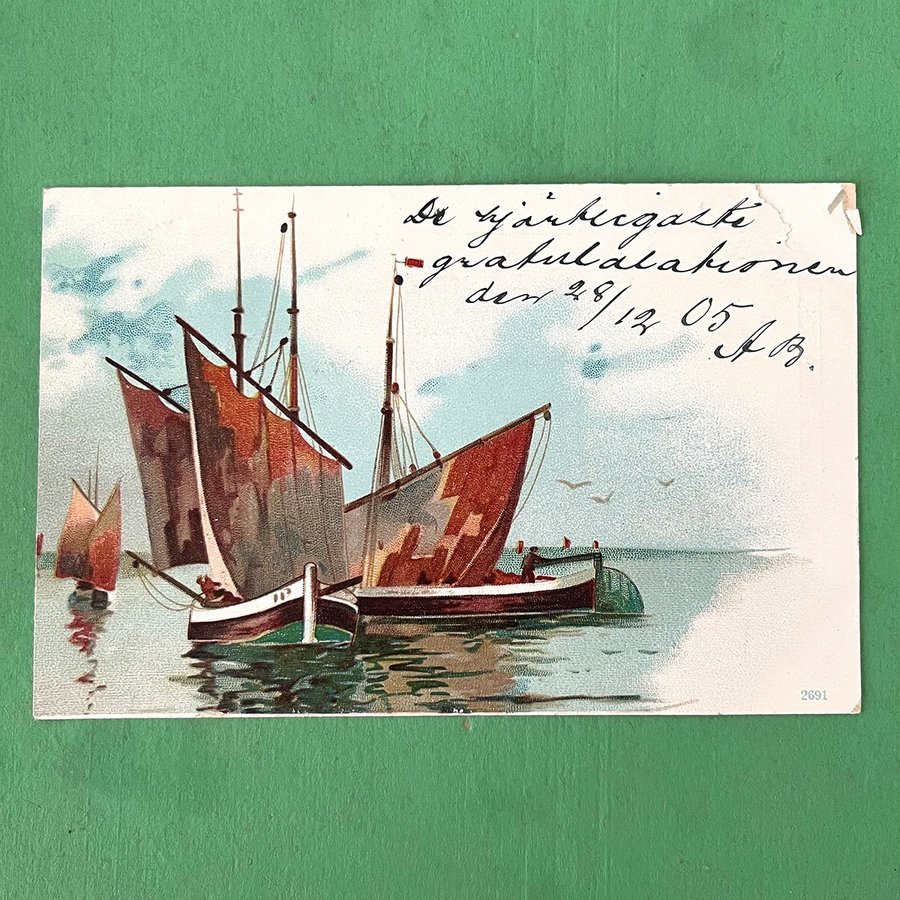 De hjärtligaste
gratulalationen
den 28/12 05
A B.
2691